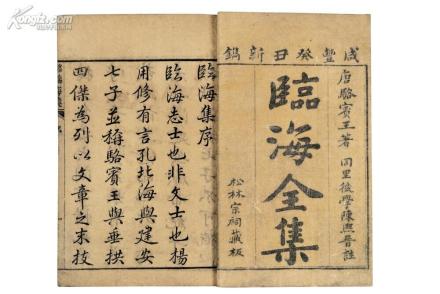 咸豐癸丑新鐫
唐駱賓王著 同里後學陳熙晉註
臨海全集
松林宗祠藏板
臨海集序
臨海志士也非文士也楊
用修有言孔北海與建安
七子並稱駱賓王與垂拱
四傑為列以文章之末技